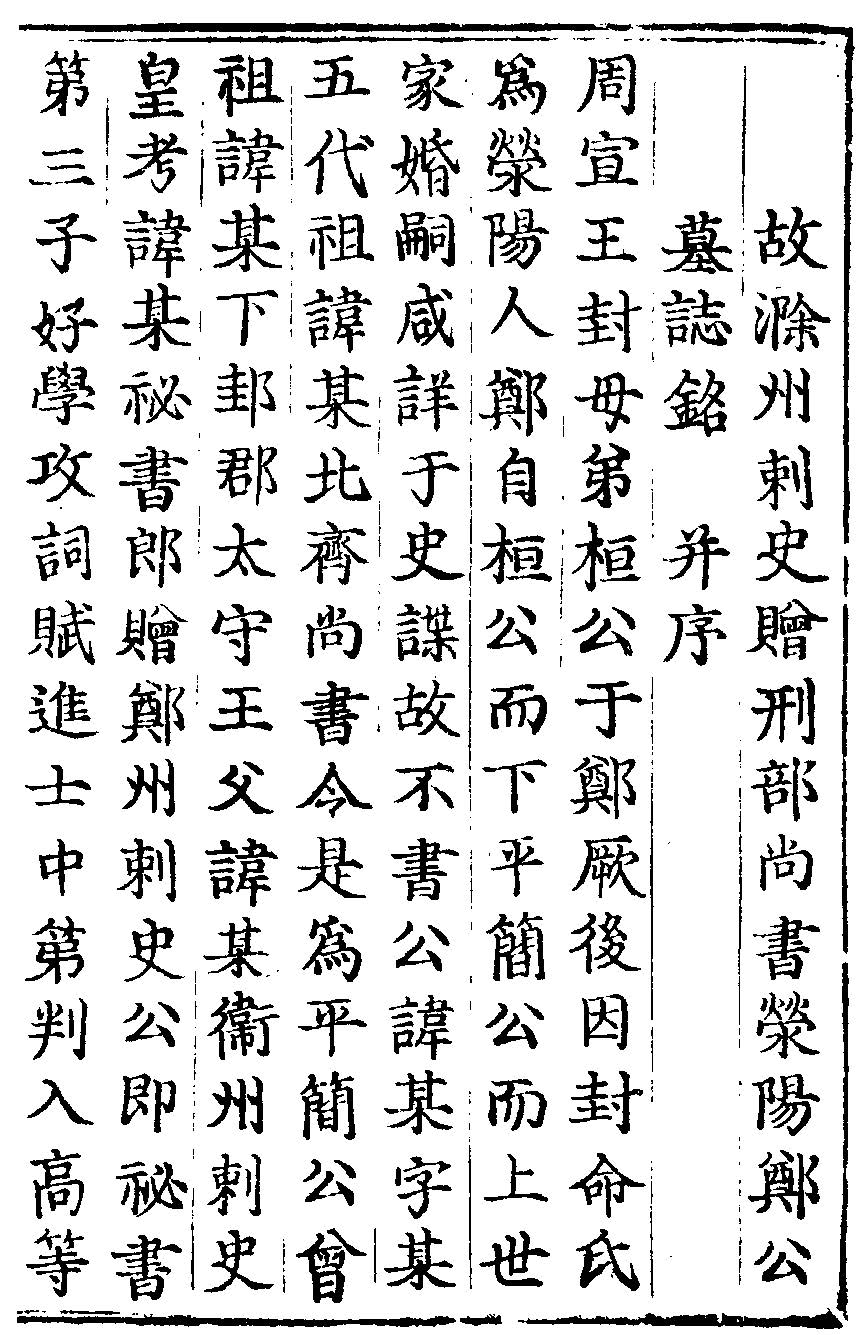 故滁州刺史贈刑部尚書滎陽鄭公
墓誌銘　并序
周宣王封母弟桓公于鄭厥後因封命氏
爲滎陽人鄭自桓公而下平簡公而上世
家婚嗣咸詳于史諜故不書公諱某字某
五代祖諱某北齊尚書令是爲平簡公曾
祖諱某下邽郡太守王父諱某衞州刺史
皇考諱某祕書郎贈鄭州刺史公即祕書
第三子好學攻詞賦進士中第判入高等